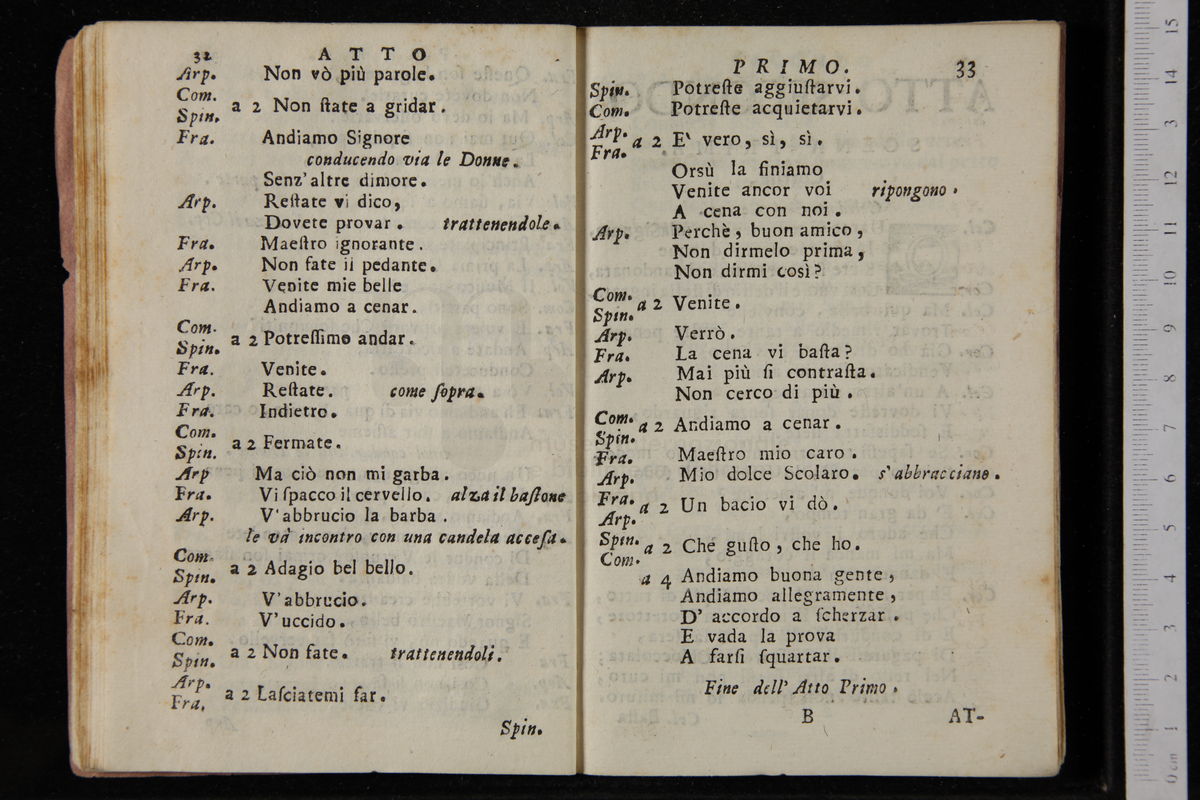 32 ATTO
Arp. Non vò più parole.
Com.
Spin. a 2 Non ſtate a gridar.
Fra. Andiamo Signore
conducendo via le Donne.
Senz'altre dimore.
Arp. Reſtate vi dico,
Dovete provar. trattenendole.
Fra. Maeſtro ignorante.
Arp. Non fate il pedante.
Fra. Venite mie belle
Andiamo a cenar.
Com.
Spin. a 2 Potreſſimo andar.
Fra. Venite.
Arp. Reſtate. come ſopra.
Fra. Indietro.
Com.
Spin. a 2 Fermate.
Arp Ma ciò non mi garba.
Fra. Vi ſpacco il cervello. alza il baſtone
Arp. V'abbrucio la barba.
le và incontro con una candela acceſa.
Com.
Spin. a 2 Adagio bel bello.
Arp. V'abbrucio.
Fra. V'uccido.
Com.
Spin. a 2 Non fate. trattenendoli.
Arp.
Fra. a 2 Laſciatemi far.
Spin.
PRIMO. 33
Spin. Potreſte aggiuſtarvi.
Com. Potreſte acquietarvi.
Arp.
Fra. a 2 E' vero, sì, sì.
Orsù la finiamo
Venite ancor voi ripongono.
A cena con noi.
Arp. Perchè, buon amico,
Non dirmelo prima,
Non dirmi così?
Com.
Spin. a 2 Venite.
Arp. Verrò.
Fra. La cena vi baſta?
Arp. Mai più ſi contraſta.
Non cerco di più.
Com.
Spin. a 2 Andiamo a cenar.
Fra. Maeſtro mio caro.
Arp. Mio dolce Scolaro. s'abbracciano.
Fra.
Arp. a 2 Un bacio vi dò.
Spin.
Com. a 2 Che guſto, che ho.
a 4 Andiamo buona gente,
Andiamo allegramente,
D' accordo a ſcherzar.
E vada la prova
A farſi ſquartar.
Fine dell' Atto Primo.
B AT-
0 cm 1 2 3 4 5 6 7 8 9 10 11 12 13 14 15